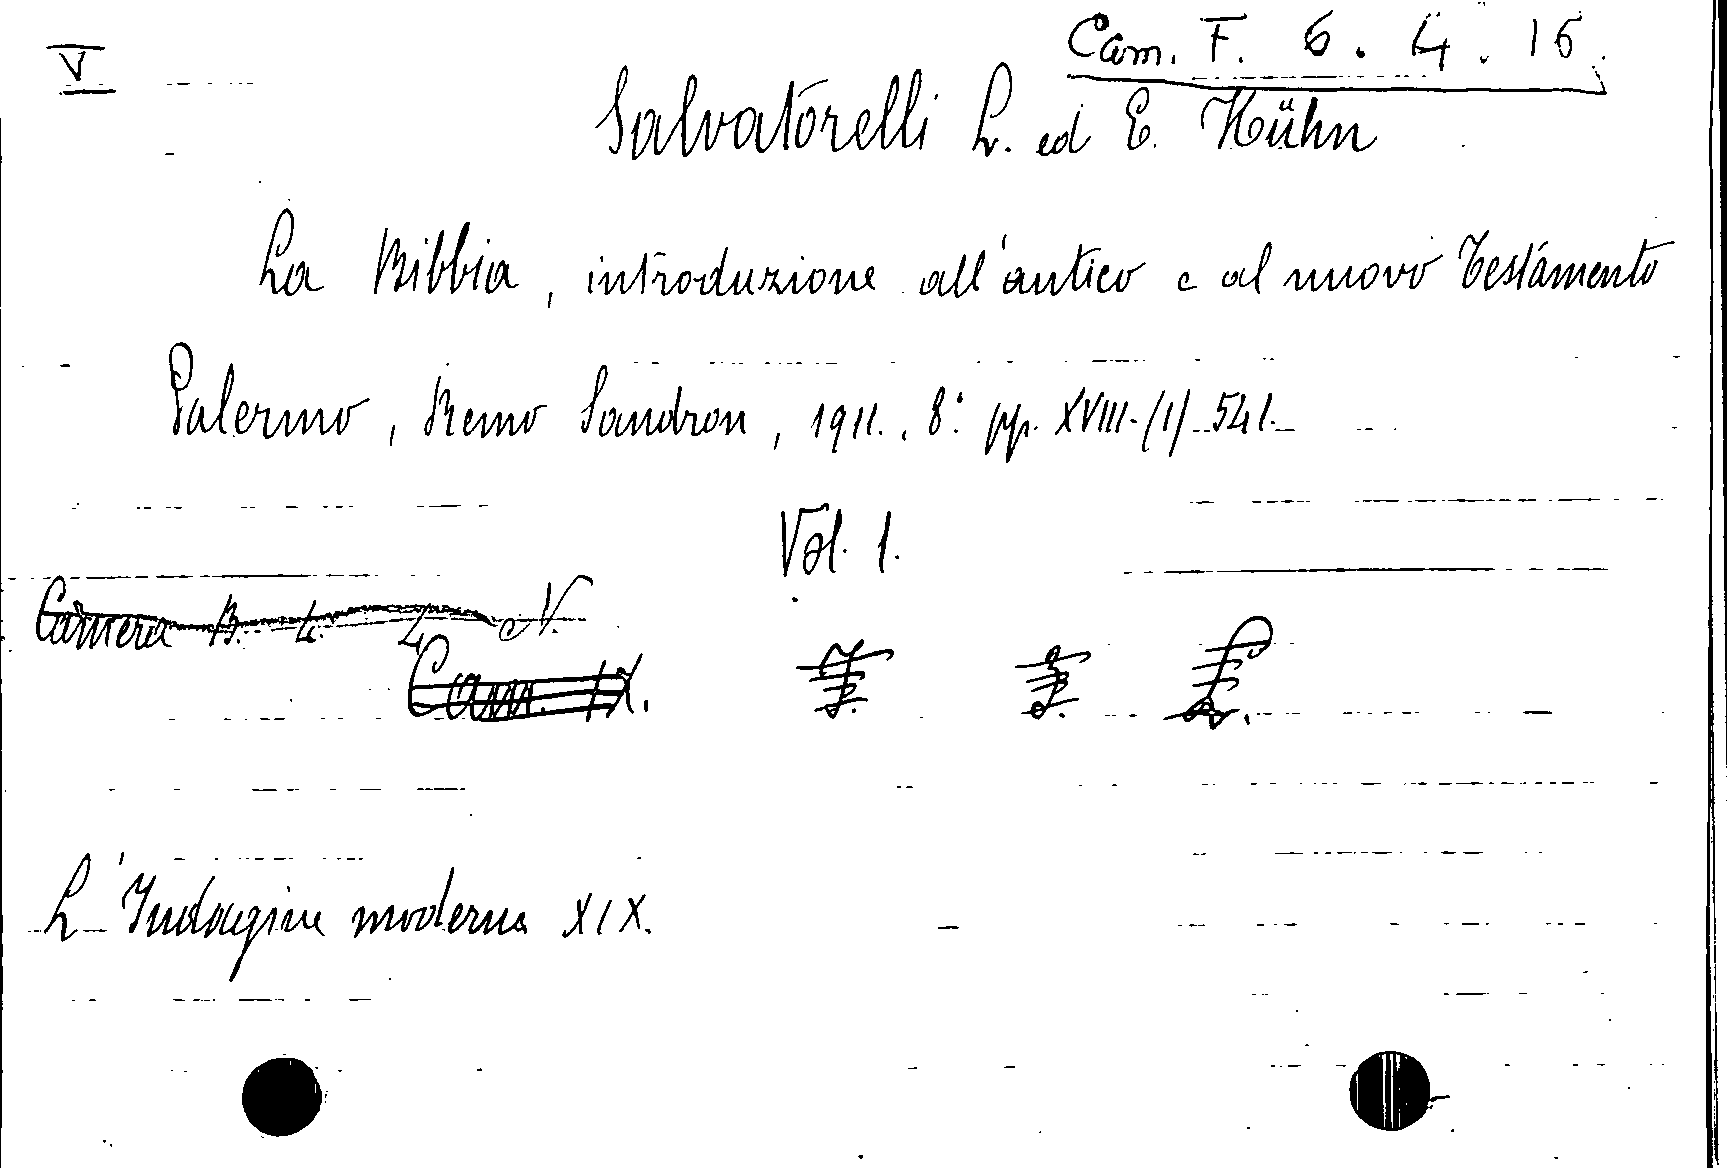 V
Cam. F. 6. 4. 16.
Salvatorelli L. ed E. Hühn
La Bibbia, introduzione all'antico e al nuovo Testamento
Palermo, Remo Sandron, 1911. 8° pp. XVIII-(1) 541.
Vol. 1.
Camera B. 4. 4 N.
Cam.
L'Indagine moderna XIX.